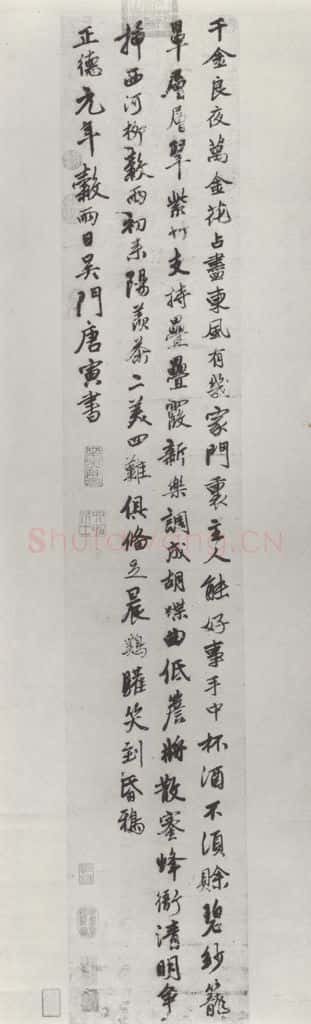 千金良夜萬金花占盡東風有幾家門裏主人能好事手中杯酒不須賒碧紗籠
罩層層翠紫竹支持疊疊霞新樂調成胡蝶曲低簷將散蜜蜂衙清明爭
插西河柳穀雨初來陽羡茶二美四難俱俻足晨鷄矐笑到昏鴉
正德元年穀雨日吳門唐寅書
Shufawang.CN